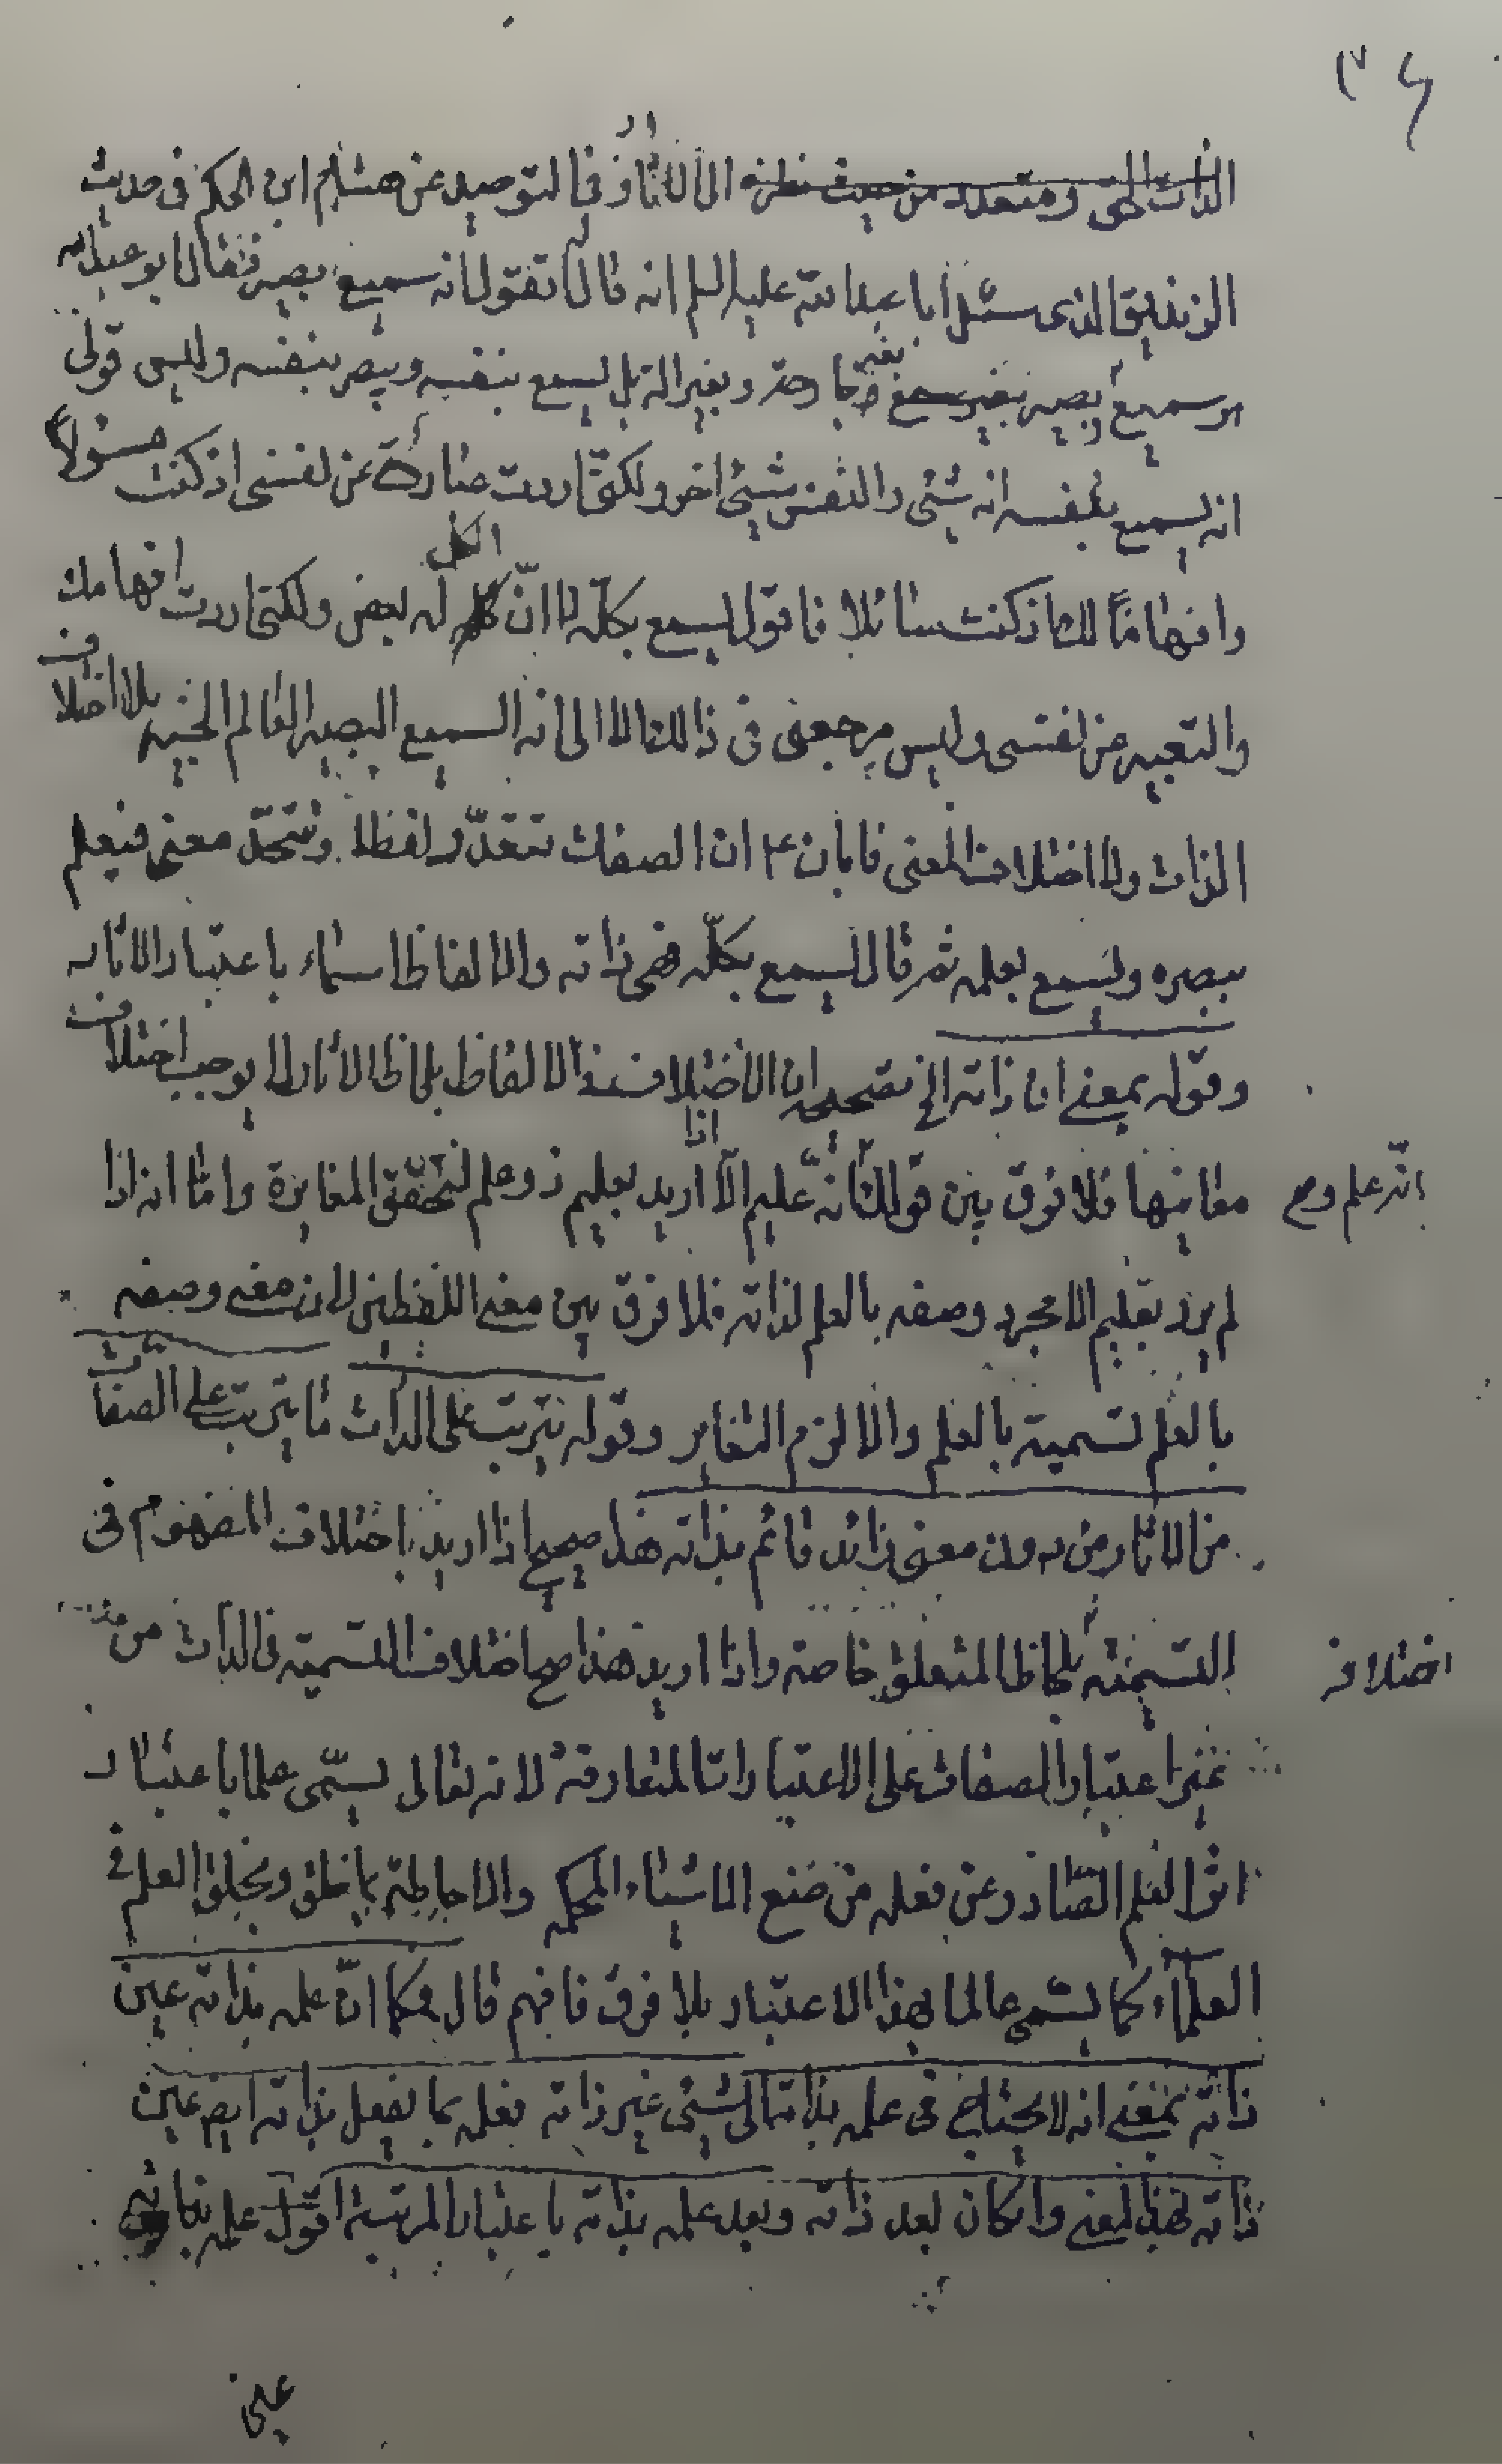 ٣٤
الذات الحق ومتعدد من حيث نظره الى الاثار وفي التوحيد عن هشام ابن الحكم في حديث
الزنديق الذى سئل ابا عبد الله عليه السلم انه قال له اتقول انه سميع بصير فقال ابو عبد الله
هو سميع بصير سميع بغير جارحة وبغير الة بل يسمع بنفسه ويبصر بنفسه وليس قولى
انه يسمع بنفسه انه شئى والنفس شئى اخر ولكنى اردت عبارة عن نفسى اذ كنت مسئولا
وافهاما لك اذ كنت سائلا فاقول يسمع بكلّه لا انّ كله الكل له بعض ولكنى اردت افهامك
والتعبير عن نفسى وليس مرجعى في ذلك الا الى انه السميع البصير العالم الخبير بلا اختلاف
الذات ولا اختلاف المعنى فابان ع ان الصفات تتعدّد لفظا وتتحد معنى فيعلم
ببصره ويسمع بعلمه ثم قال يسمع بكلّه فهى ذاته والالفاظ اسماء باعتبار الاثار
وقوله بمعنى ان ذاته الخ ان الاختلاف في الالفاظ بلحاظ الاثار لا يوجب اختلاف
معانيها فلا فرق بين قولك انه عليم الا اذا اريد بعليم ذو علم لتحقق المغايرة وامّا انه اذا
انّه علم و صح
لم يرد بعليم الا مجرد وصفه بالعلم لذاته فلا فرق بين معنى اللفظين لان معنى وصفه
بالعلم تسميته بالعلم والا لزم التغاير وقوله يترتب على الذات ما يترتب على الصفات
من الاثار من دون معنى زائد قائم بذاته هذا صحيح اذا اريد باختلاف المفهوم في
التسمية بلحاظ المتعلق خاصة واذا اريد هذا صح اختلاف التسمية في الذات من
اختلاف
غير اعتبار الصفات على الاعتبارات المتعارفة لانه تعالى يسمّى علما باعتبار
اثر العلم الصادر عن فعله من صنع الاشياء المحكمة والاحاطة بما خلق ويخلق العلم في
العلماء كما يسمى عالما بهذا الاعتبار بلا فرق فافهم قال فكما انّ علمه بذاته عين
ذاته بمعنى انه لا يحتاج فى علمه بذاته الى شئى غير ذاته فعلمه بما يفعل بذاته ايضا عين
ذاته بهذا المعنى وان كان بعد ذاته وبعد علمه بذاته باعتبار المرتبة اقول علمه بذاته
عين